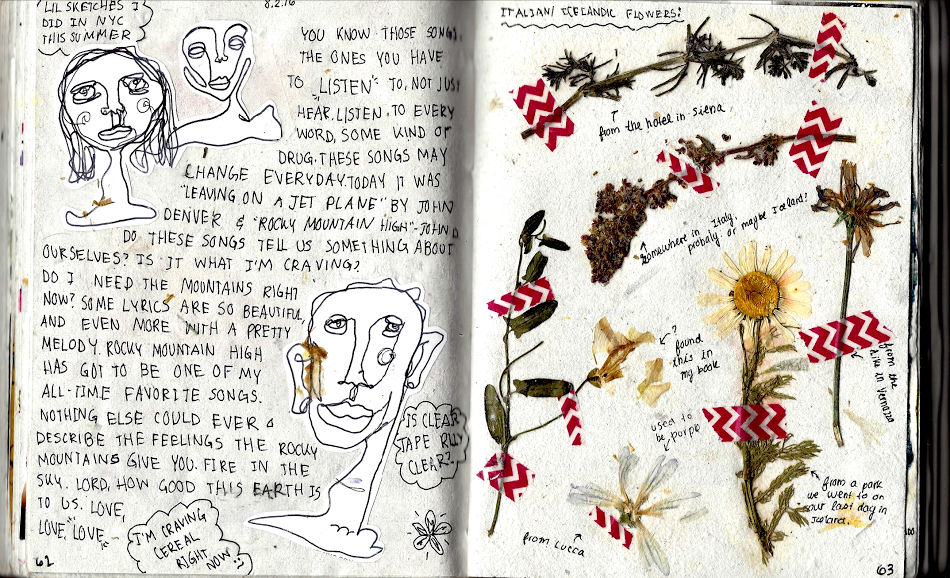 LIL SKETCHES I
DID IN NYC
THIS SUMMER
8.2.16
YOU KNOW THOSE SONGS
THE ONES YOU HAVE
TO "LISTEN" TO, NOT JUST
HEAR. LISTEN. TO EVERY
WORD, SOME KIND OF
DRUG. THESE SONGS MAY
CHANGE EVERYDAY. TODAY IT WAS
"LEAVING ON A JET PLANE" BY JOHN
DENVER & "ROCKY MOUNTAIN HIGH" - JOHN D
DO THESE SONGS TELL US SOMETHING ABOUT
OURSELVES? IS IT WHAT I'M CRAVING?
DO I NEED THE MOUNTAINS RIGHT
NOW? SOME LYRICS ARE SO BEAUTIFUL,
AND EVEN MORE WITH A PRETTY
MELODY. ROCKY MOUNTAIN HIGH
HAS GOT TO BE ONE OF MY
ALL-TIME FAVORITE SONGS.
NOTHING ELSE COULD EVER
DESCRIBE THE FEELINGS THE ROCKY
MOUNTAINS GIVE YOU. FIRE IN THE
SKY. LORD, HOW GOOD THIS EARTH IS
TO US. LOVE,
LOVE, LOVE,
IS CLEAR
TAPE RLLY
CLEAR?
I'M CRAVING
CEREAL
RIGHT
NOW :)
62
ITALIAN/ ICELANDIC FLOWERS:
from the hotel in siena
somewhere in Italy,
probaly. or maybe Iceland?
?
found
this in
my book
from the
hike in Vernazza
used to
be purple
from Lucca
from a park
we went to on
our last day in
Iceland.
63